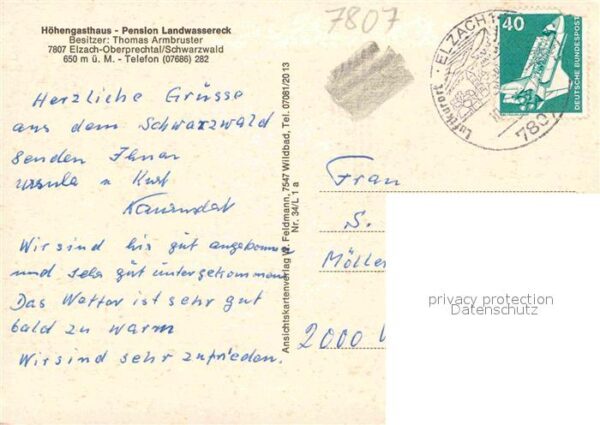 Höhengasthaus - Pension Landwassereck
Besitzer: Thomas Armbruster
7807 Elzach-Oberprechtal/Schwarzwald
650 m ü. M. - Telefon (07686) 282
7807
Luftkurort · ELZACH 1
7807
40
DEUTSCHE BUNDESPOST
Herzliche Grüsse
aus dem Schwarzwald
senden Ihnen
Ursula u Kurt
Wir sind hir gut angekommen
und sehr gut untergekommen
Das Wetter ist sehr gut
bald zu warm
Wir sind sehr zufrieden.
Ansichtskartenverlag W. Feldmann, 7547 Wildbad, Tel. 07081/2013
Nr. 34/L 1 a
Frau
S.
Möller
2000
privacy protection
Datenschutz